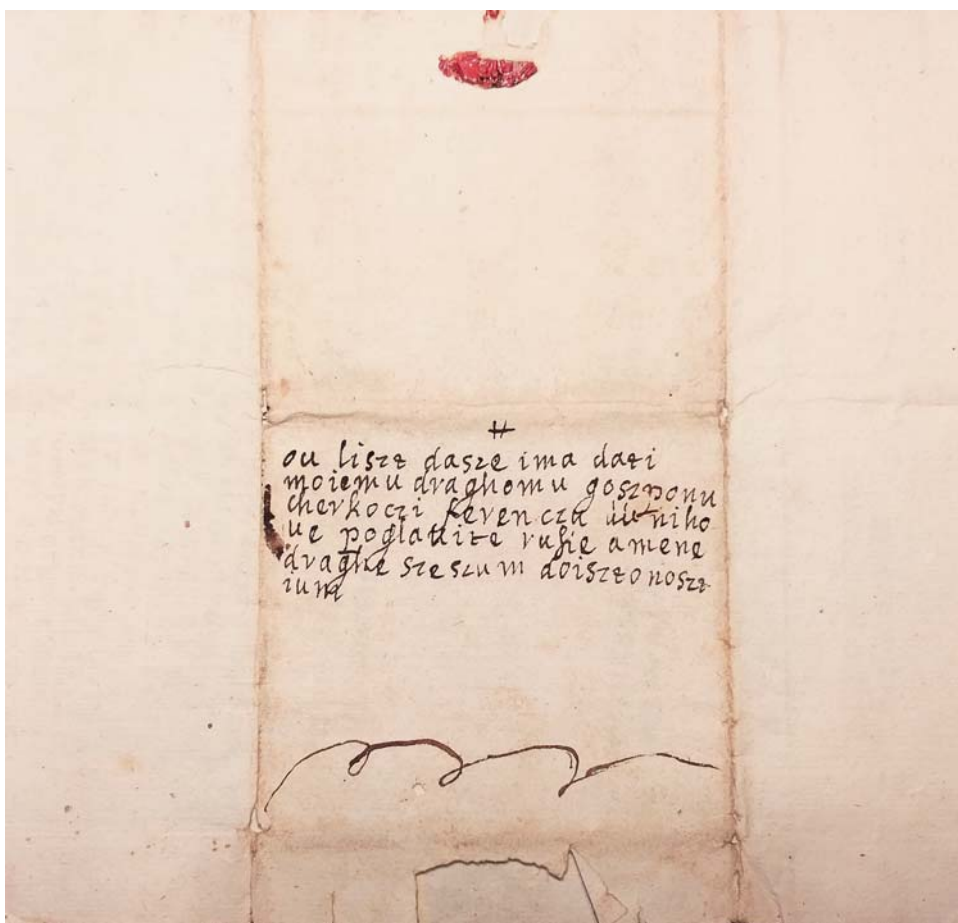 ou liszt dasze ima dati
moiemu draghomu goszponu
cherkoczi ferencza uu niho
ue poglauite rusie amene
draghe szeszum doisztonoszt
iuma